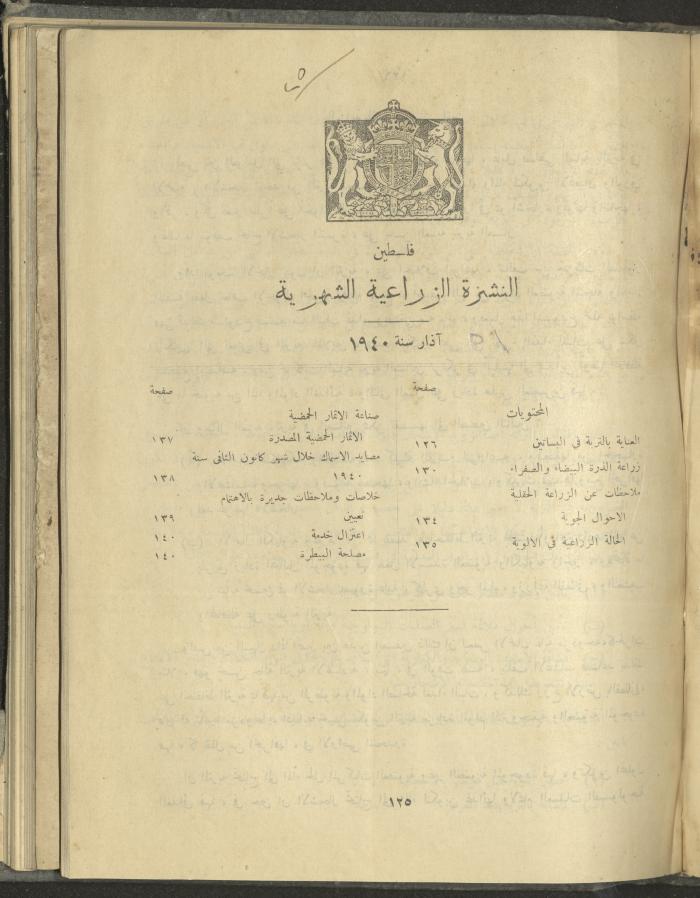 فلسطين
النشرة الزراعية الشهرية
آذار سنة ١٩٤٠
المحتويات
صفحة
العناية بالتربة في البساتين ١٢٦
زراعة الذرة البيضاء والصفراء ١٣٠
ملاحظات عن الزراعة الحقلية
الاحوال الجوية ١٣٤
الحالة الزراعية في الالوية ١٣٥
صفحة
صناعة الاثمار الحمضية
الاثمار الحمضية المصدرة ١٣٧
مصايد الاسماك خلال شهر كانون الثاني سنة
١٩٤٠ ١٣٨
خلاصات وملاحظات جديرة بالاهتمام
تعيين ١٣٩
اعتزال خدمة ١٤٠
مصلحة البيطرة ١٤٠
١٢٥